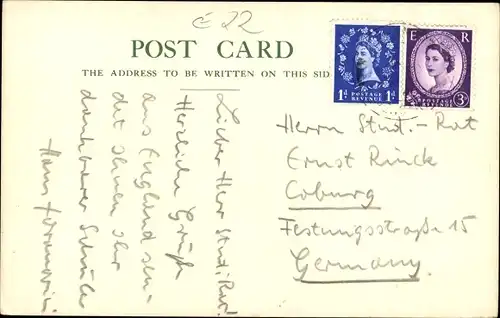 E 22
POST CARD
THE ADDRESS TO BE WRITTEN ON THIS SID
1D POSTAGE REVENUE 1D
E R
POSTAGE REVENUE 3D
Lieber Herr Stud. Rat!
Herzliche Grüße
aus England sen-
det Ihnen Ihr
dankbarer Schüler
Hans
Herrn Stud.-Rat
Ernst Rinck
Coburg
Festungsstraße 15
Germany